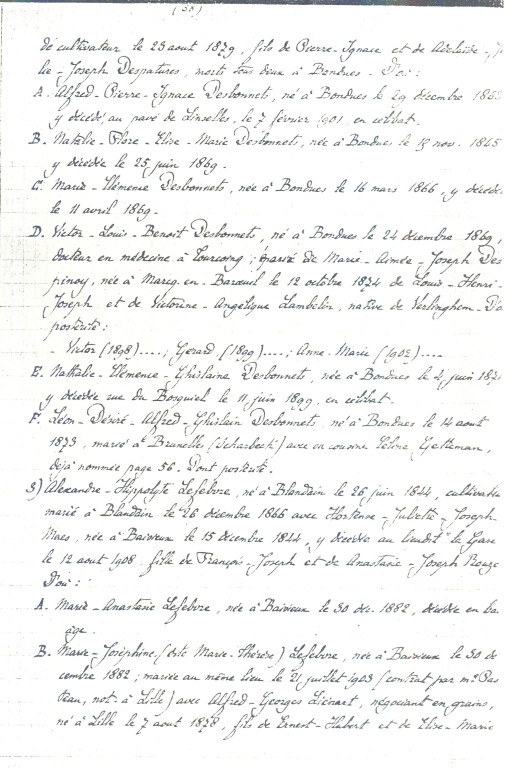 (58)
de cultivateur le 23 aout 1879, fils de Pierre-Ignace et de Adélaïde-Ju
lie-Joseph Despatures, morts tous deux à Bondues. D'où:
A. Alfred-Pierre-Ignace Desbonnets, né à Bondues le 29 décembre 1863
y décédé, au pavé de Linselles, le 7 février 1901, en célibat.
B. Natalie-Flore-Elise-Marie Desbonnets, née à Bondues le 18 nov. 1865
y décédée le 25 juin 1869.
C. Marie-Clémence Desbonnets, née à Bondues le 16 mars 1866, y décédée
le 11 avril 1869.
D. Victor-Louis-Benoit Desbonnets, né à Bondues le 24 décembre 1869,
docteur en médecine à Tourcoing; marié de Marie-Aimée-Joseph Des
pinoy, née à Marcq-en-Baroeul le 12 octobre 1874 de Louis-Henri-
Joseph et de Victorine-Angélique Lambelin, native de Verlinghem. D'où
postérité:
- Victor (1898)....; Gérard (1899)....; Anne-Marie (1902)....
E. Nathalie-Clémence-Ghislaine Desbonnets, née à Bondues le 4 juin 1871
y décédée rue du Bosquiel le 11 juin 1899, en célibat.
F. Léon-Désiré-Alfred-Ghislain Desbonnets, né à Bondues le 14 aout
1873, marié à Bruxelles (Scharbeek) avec sa cousine Céline
déjà nommée page 56. Dont postérité.
3) Alexandre-Hippolyte Lefebvre, né à Blandain le 26 juin 1844, cultivateur
marié à Blandain le 26 décembre 1866 avec Hortense-Juliette-Joseph
Maes, née à Baisieux le 15 décembre 1844, y décédée au lieudit "le Gare
le 12 aout 1908, fille de François-Joseph et de Anastasie-Joseph Rouze
D'où:
A. Marie-Anastasie Lefebvre, née à Baisieux le 30 déc. 1882, décédée en bas
âge.
B. Marie-Joséphine (dite Marie-Thérèse) Lefebvre, née à Baisieux le 30 dé
cembre 1882; mariée au même lieu le 21 juillet 1903 (contrat par me Pas
teau, not. à Lille) avec Alfred-Georges Liénart, négociant en grains,
né à Lille le 7 aout 1878, fils de Ernest-Hubert et de Elise-Marie